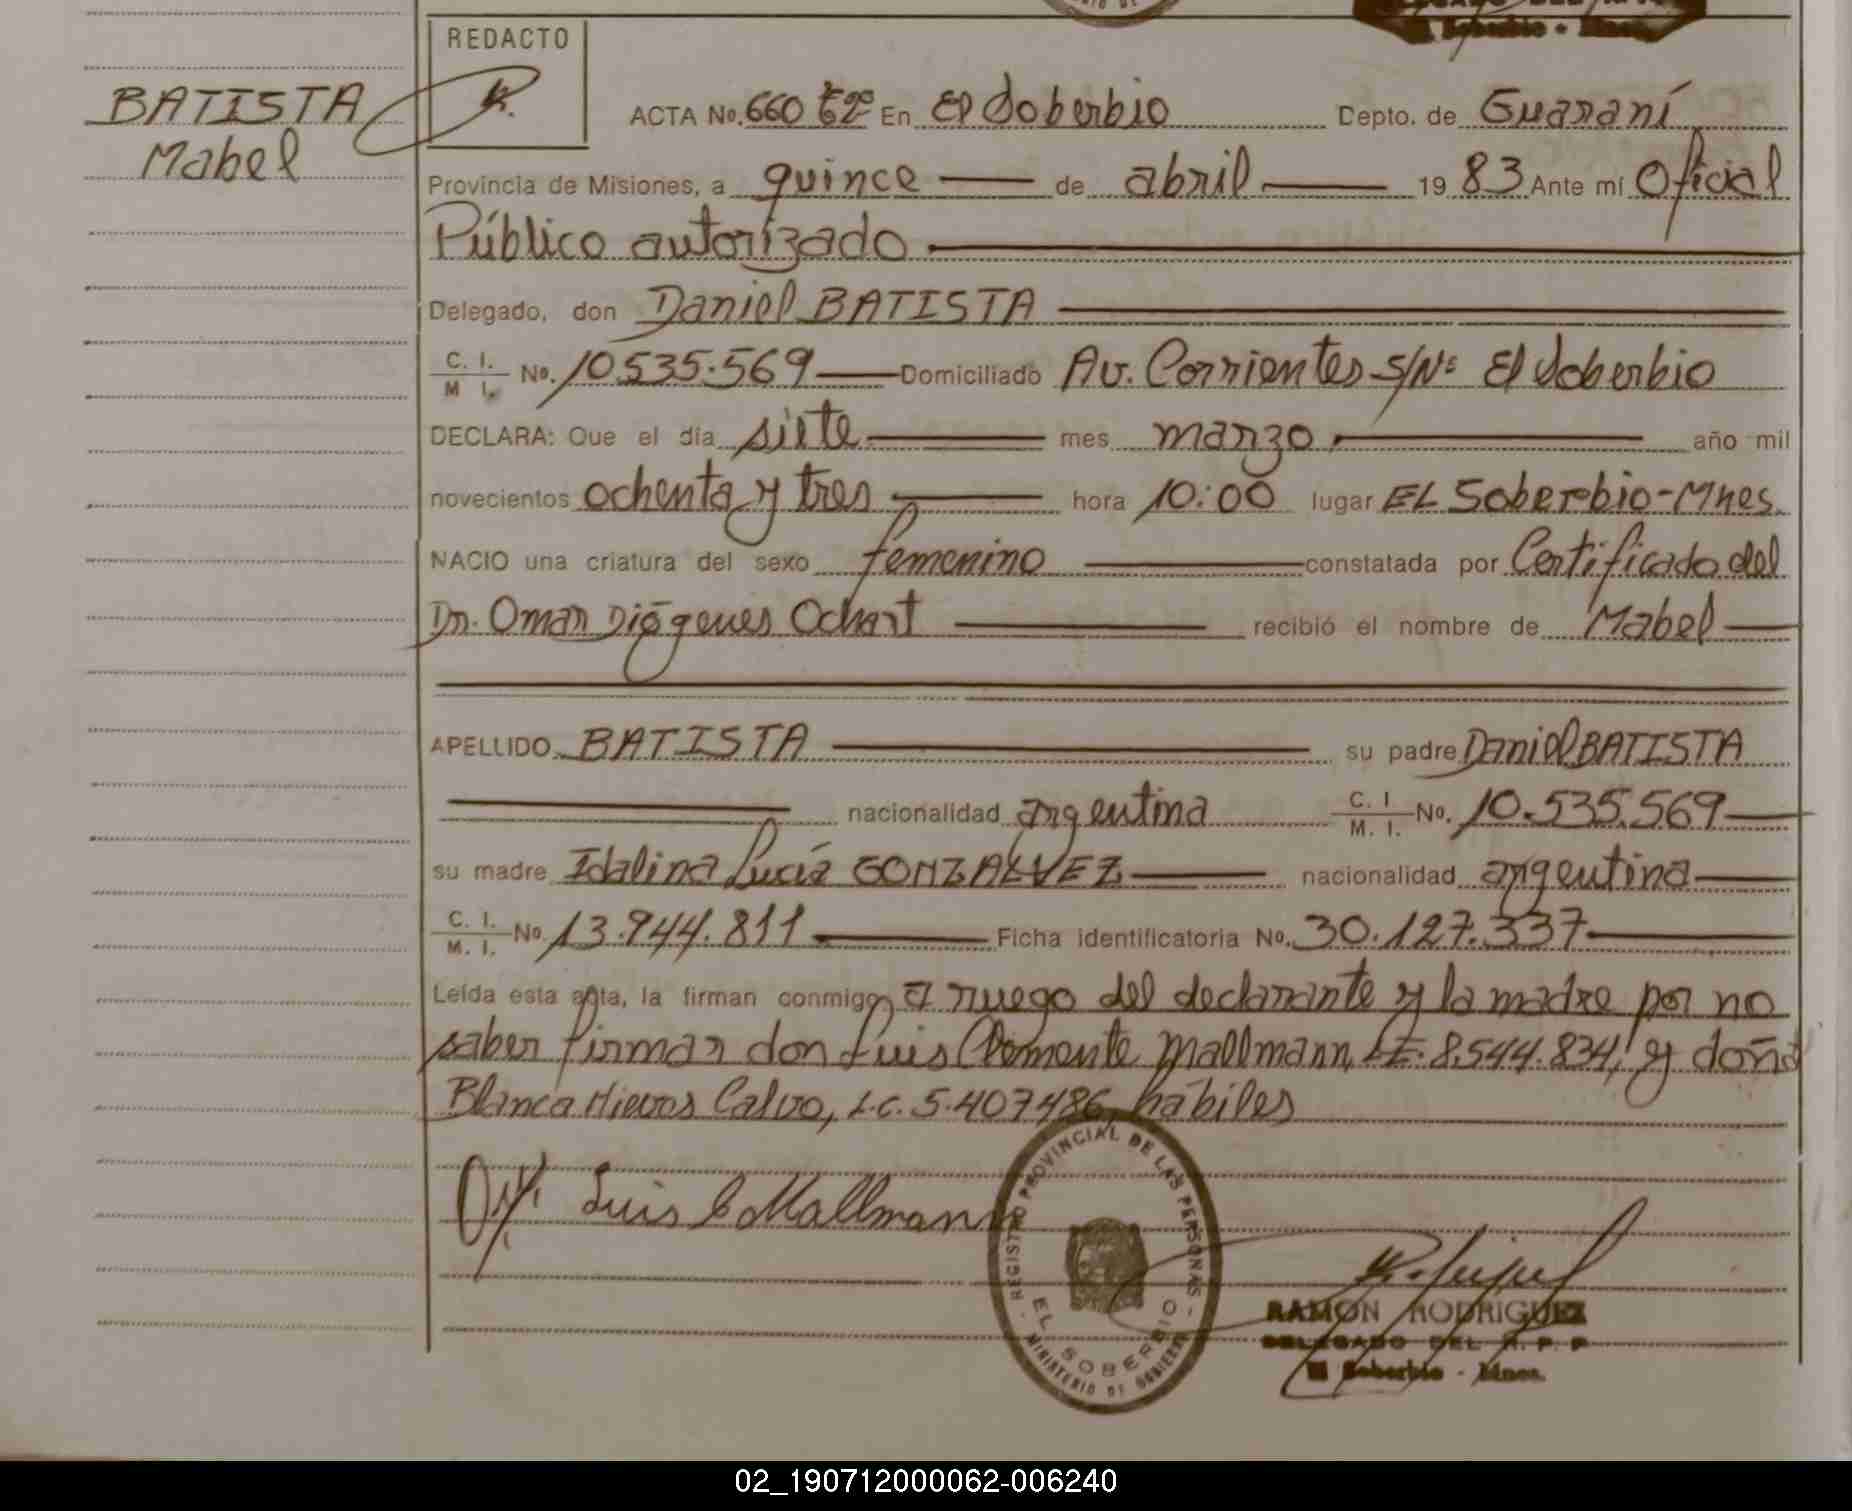 REDACTO
BATISTA
Mabel
ACTA No. 660 Tº2º En El Soberbio Depto. de Guaraní
Provincia de Misiones, a quince de abril 19 83 Ante mí Oficial
Público autorizado
Delegado, don Daniel BATISTA
C. I. M. I. No. 10.535.569 Domiciliado Av. Corrientes S/Nº El Soberbio
DECLARA: Que el día siete mes marzo año mil
novecientos ochenta y tres hora 10:00 lugar EL Soberbio-Mnes.
NACIO una criatura del sexo femenino constatada por Certificado del
Dr. Omar Diógenes Ochart recibió el nombre de Mabel
APELLIDO BATISTA su padre Daniel BATISTA
nacionalidad argentina C. I. M. I. No. 10.535.569
su madre Idalina Lucía GONZALVEZ nacionalidad argentina
C. I. M. I. No. 13.944.811 Ficha identificatoria No. 30.127.337
Leída esta acta, la firman conmigo, a ruego del declarante y la madre por no
saber firmar don Luis Clemente Mallmann, L.E. 8.544.834, y doña
Blanca Nieves Calvo, L.C. 5.407486, hábiles
Luis C Mallmann
REGISTRO PROVINCIAL DE LAS PERSONAS
EL SOBERBIO
MINISTERIO DE GOBIERNO
RAMON RODRIGUEZ
DELEGADO DEL R. P. P
El Soberbio - Mnes.
02_190712000062-006240